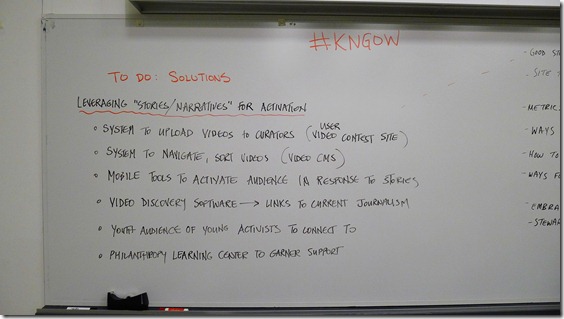 #KNGOW
TO DO: SOLUTIONS
LEVERAGING "STORIES/NARRATIVES" FOR ACTIVATION
• SYSTEM TO UPLOAD VIDEOS to CURATORS (USER VIDEO CONTEST SITE)
• SYSTEM TO NAVIGATE, SORT VIDEOS (VIDEO CMS)
• MOBILE TOOLS TO ACTIVATE AUDIENCE IN RESPONSE TO STORIES
• VIDEO DISCOVERY SOFTWARE → LINKS TO CURRENT JOURNALISM
• YOUTH AUDIENCE OF YOUNG ACTIVISTS TO CONNECT TO
• PHILANTHROPY LEARNING CENTER TO GARNER SUPPORT
- GOOD ST
- SITE S
- METRIC
- WAYS
- HOW TO
- WAYS FO
- EMBRA
- STEWAR